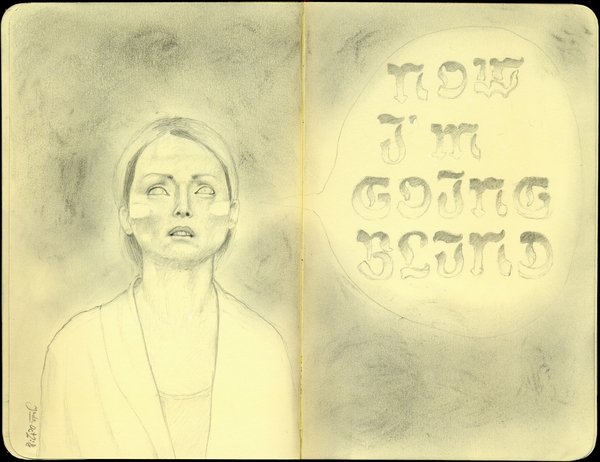 NOW
I'm
GOING
BLIND